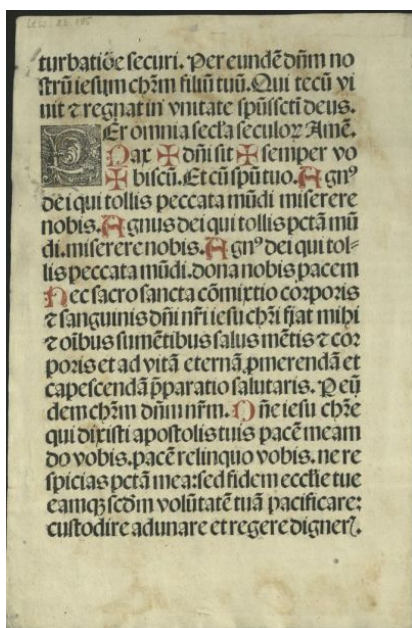 turbatiõe securi. Per eundẽ dñm no
strũ iesum chr̃m filiũ tuũ. Qui tecũ vi
uit ⁊ regnat in vnitate spũsscti deus.
PEr omnia secl̃a seculoꝝ Amẽ.
Pax ✠ dñi sit ✠ semper vo
✠ biscũ. Et cũ spũ tuo. Agnꝰ
dei qui tollis peccata mũdi miserere
nobis. Agnus dei qui tollis pctã mũ
di. miserere nobis. Agnꝰ dei qui tol⸗
lis peccata mũdi. dona nobis pacem
Hec sacrosancta cõmixtio corporis
⁊ sanguinis dñi nr̃i iesu chr̃i fiat mihi
⁊ oĩbus sumẽtibus salus mẽtis ⁊ cor
poris et ad vitã eternã ꝓmerendã et
capescendã p̃paratio salutaris. Per eũ
dem chr̃m dñm nr̃m. Dñe iesu chr̃e
qui dixisti apostolis tuis pacẽ meam
do vobis. pacẽ relinquo vobis. ne re
spicias pctã mea: sed fidem eccl̃ie tue
eamqꝫ scdm volũtatẽ tuã pacificare:
custodire adunare et regere digneriꝭ.